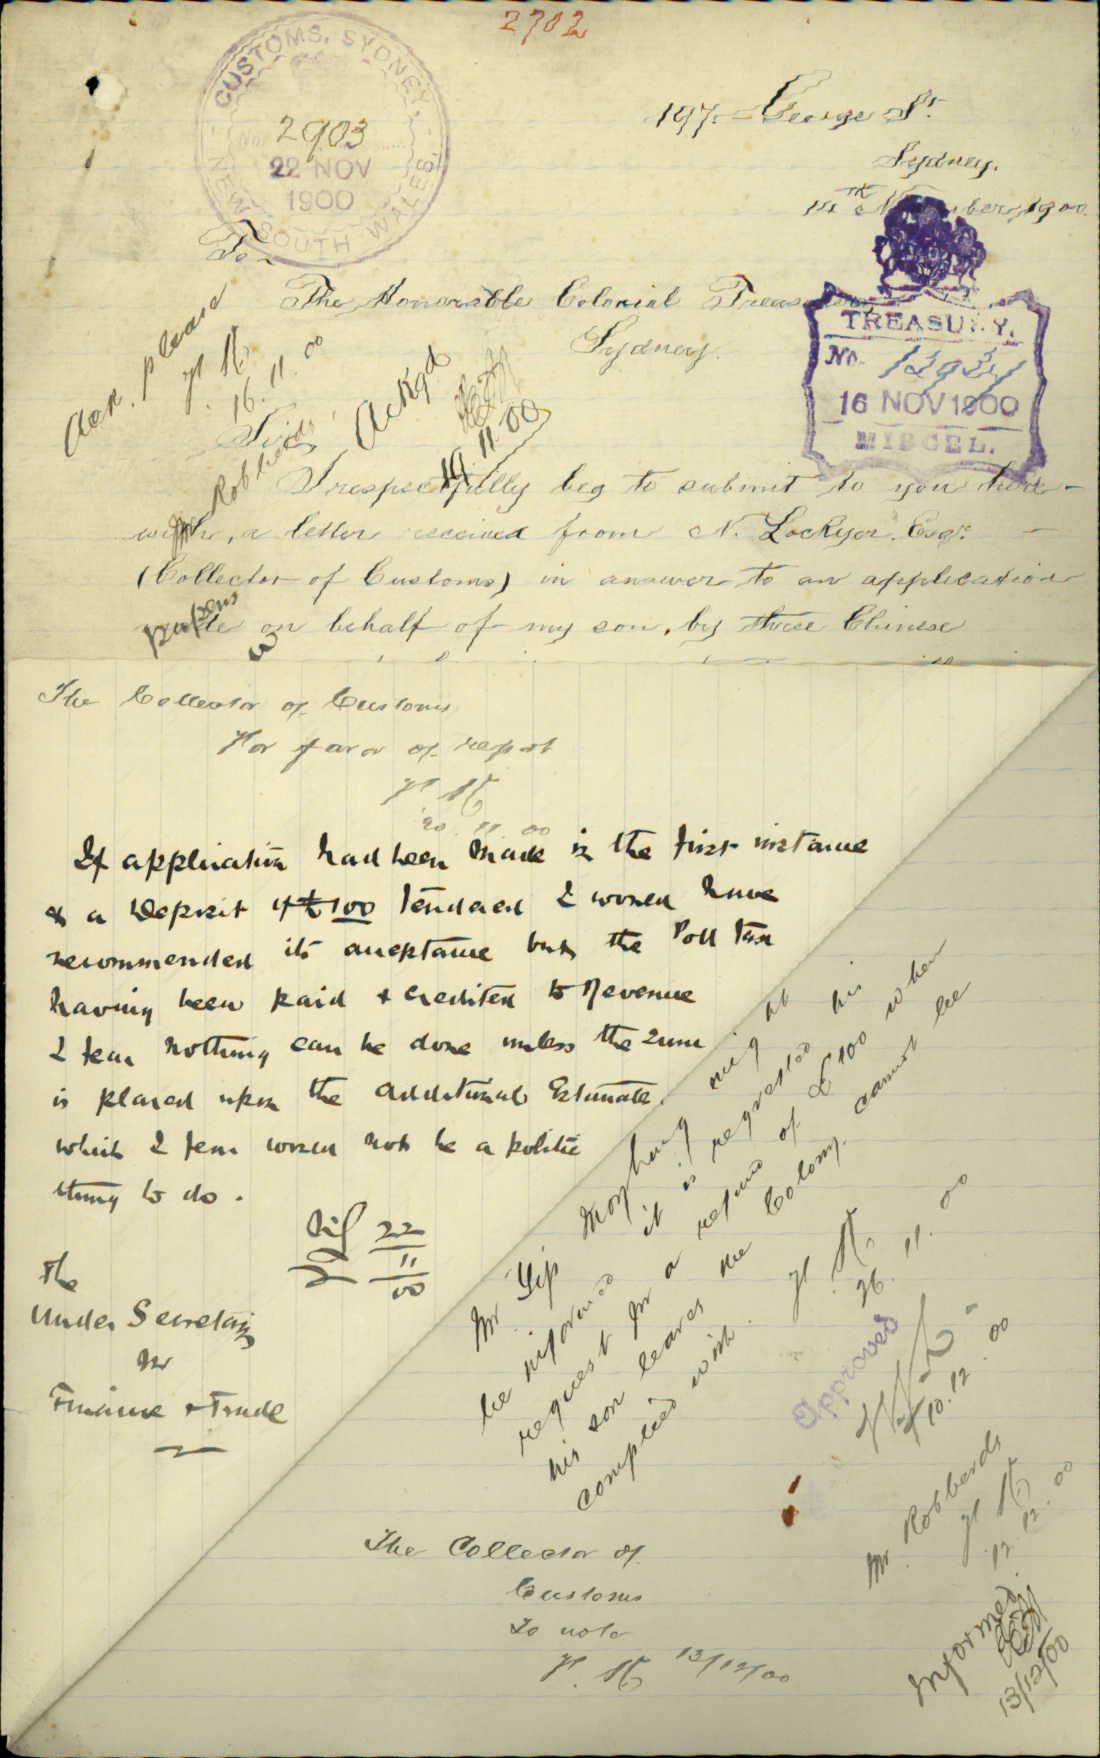 2702
CUSTOMS, SYDNEY,
No. 2903
22 NOV
1900
NEW SOUTH WALES.
197. George St.
Sydney.
1900
To
The Honorable Colonial Treasurer,
Sydney.
TREASURY.
No.
16 NOV 1900
MISCEL.
Ackn. please
16.11.00
Mr Robberds
Ackgd
19.11.00
papers
Sir,
I respectfully beg to submit to you here-
with, a letter received from N. Lockyer. Esqr.
(Collector of Customs) in answer to an application
made on behalf of my son, by three Chinese
The Collector of Customs
For favor of report
20.11.00
If application had been made in the first instance
& a Deposit of £100 tendered I would have
recommended its acceptance but the Poll Tax
having been paid & credited to Revenue
I fear nothing can be done unless the sum
is placed upon the Additional Estimate.
which I fear would not be a politic
thing to do.
22
11
00
The
Under Secretary
for
Finance & Trade
Mr. Yip
be informed it is regretted his
request for a refund of £100 when
his son leaves the Colony cannot be
complied with.
26.11.00
Approved
10.12.00
Mr Robberds
12.12.00
Informed
13/12/00
The Collector of
Customs
To note
13/12/00